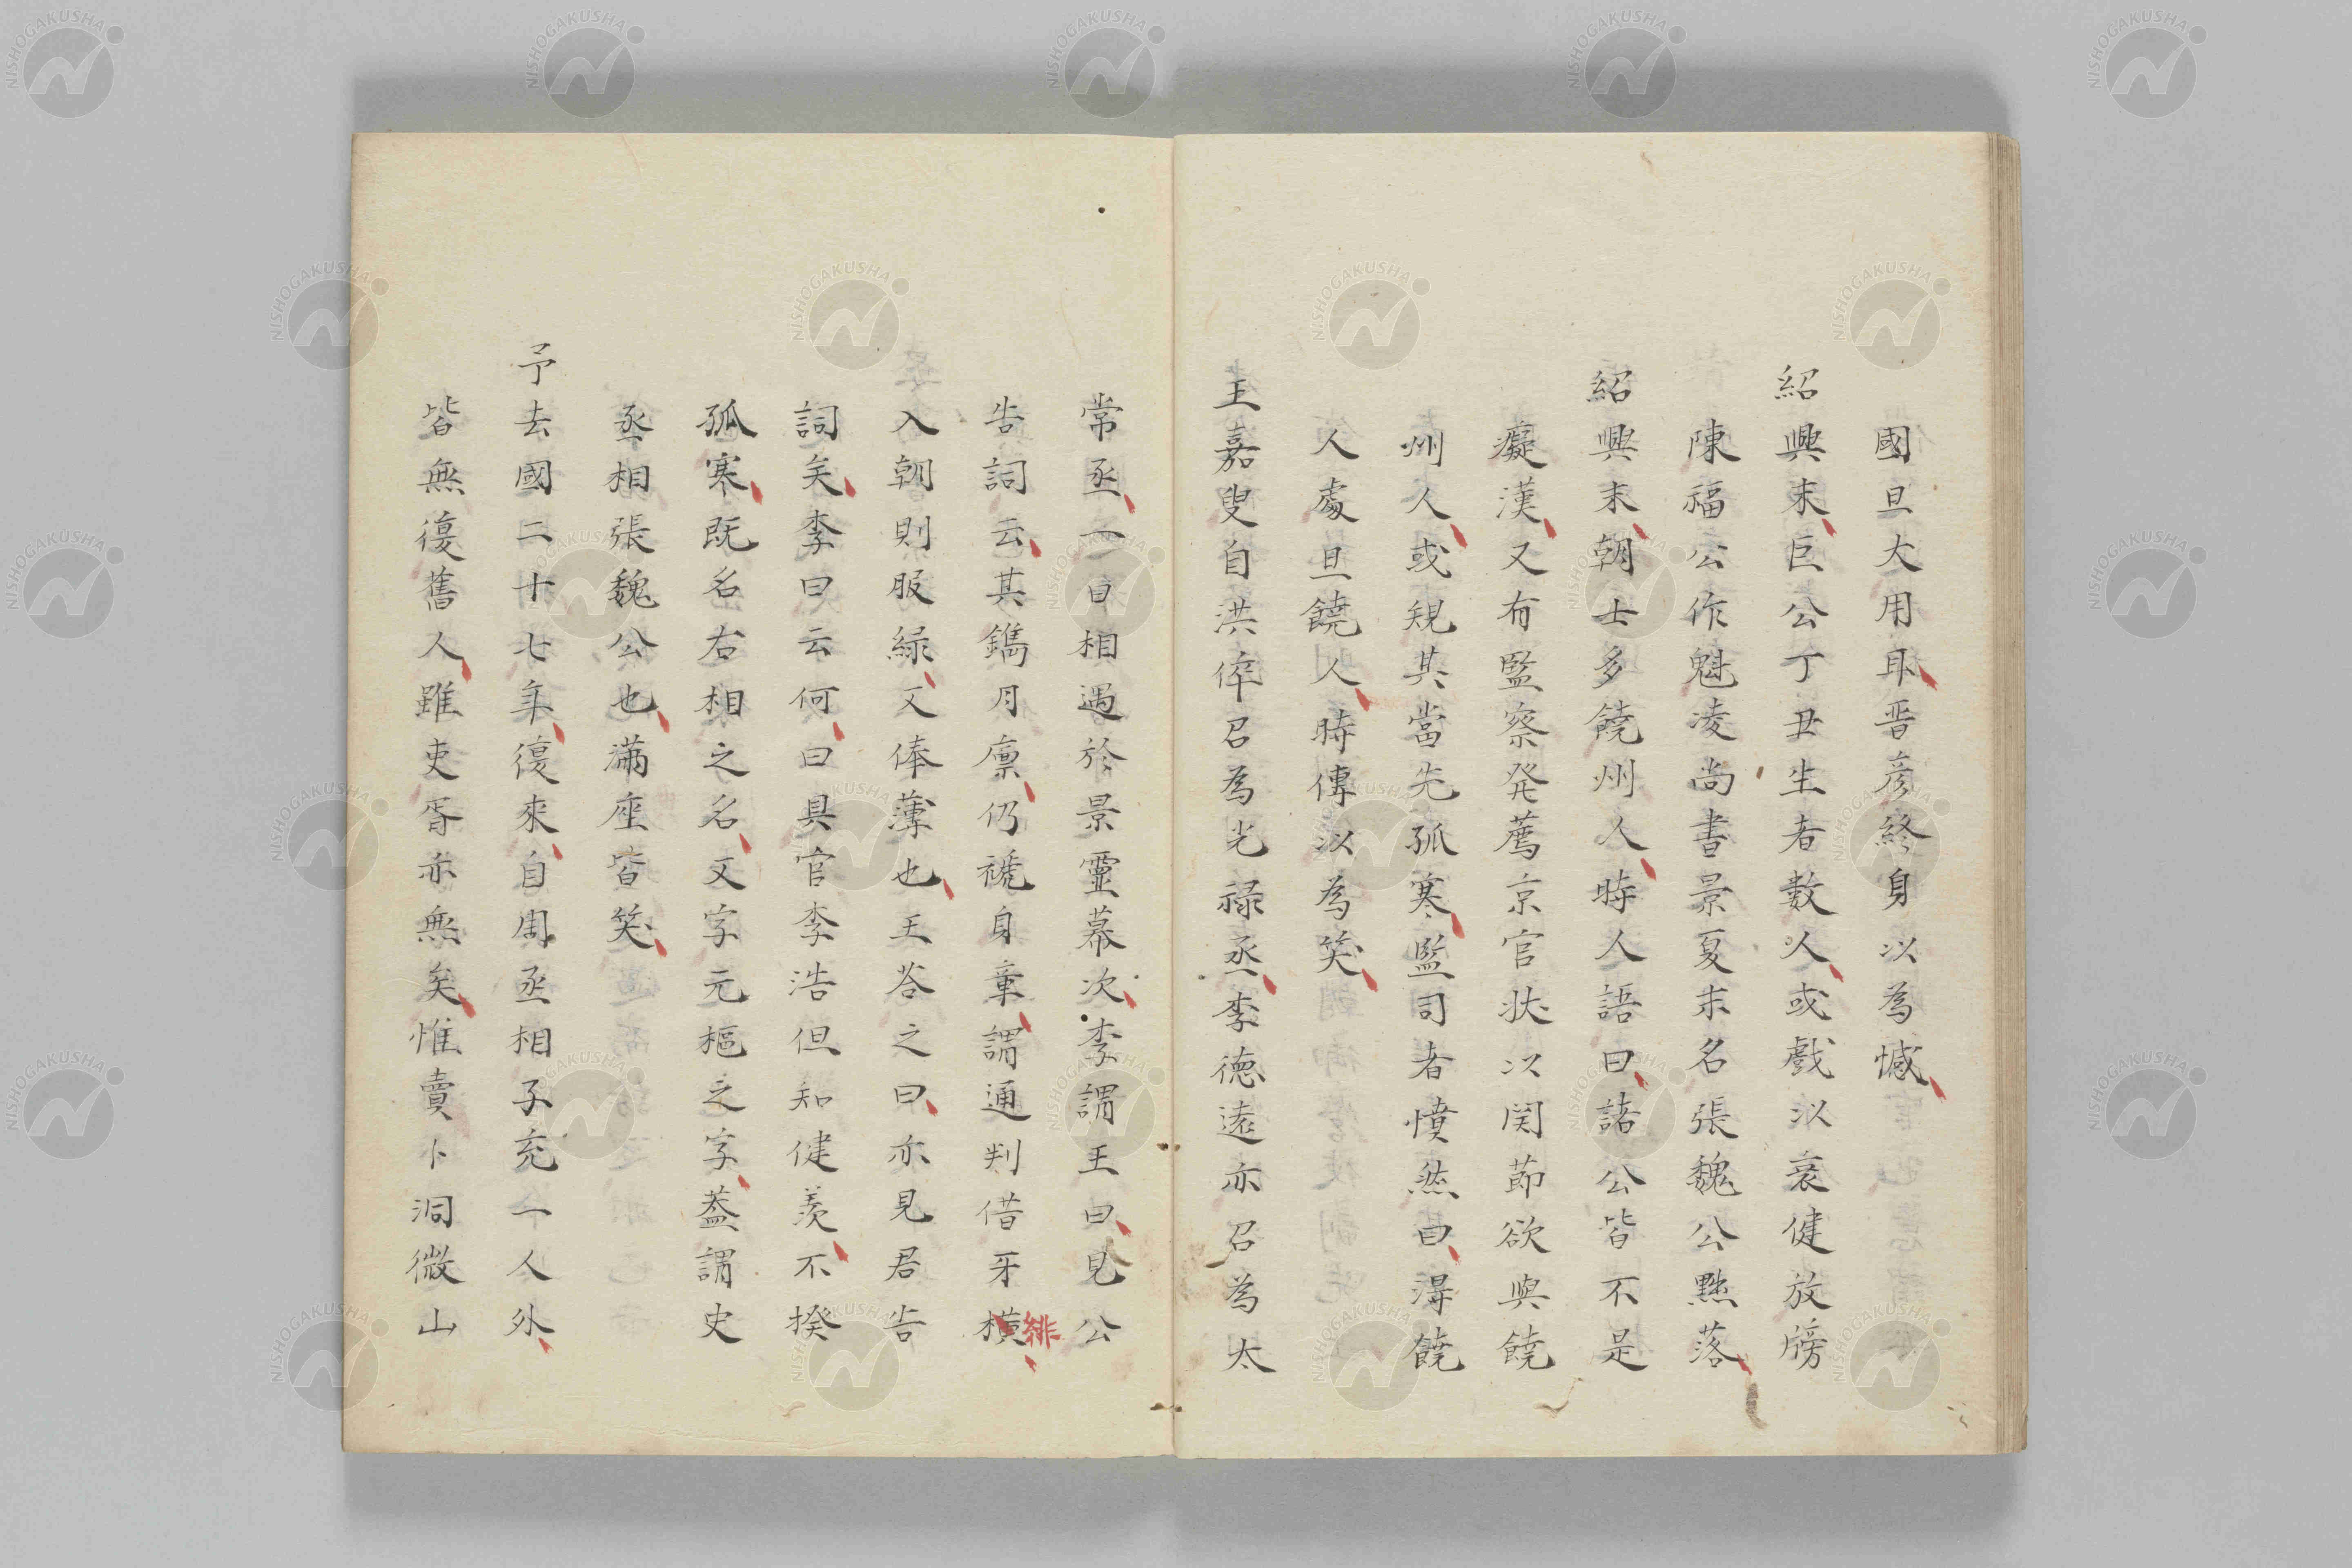 國且大用耳晋彦終身以為憾
紹興末巨公丁丑生者數人或戲以衰健放牓
陳福公作魁凌尚書景夏末名張魏公黜落
紹興末朝士多饒州人時人語曰諸公皆不是
癡漢又有監察発薦京官状以関節欲與饒
州人或規其當先孤寒監司者憤然曰得饒
人處且饒人時傳以為笑
王嘉叟自洪倅召為光禄丞李徳遠亦召為太
常丞一日相遇於景靈幕次李謂王曰見公
告詞云其鐫月廩仍褫身章謂通判借牙横
緋
入朝則服緑又俸薄也王荅之曰亦見君告
詞矣李曰云何曰具官李浩但知健羨不揆
孤寒既名右相之名又字元樞之字葢謂史
丞相張魏公也滿座皆笑
予去國二十七年復來自周丞相子充一人外
皆無復舊人雖吏胥亦無矣惟賣卜洞微山
NISHOGAKUSHA